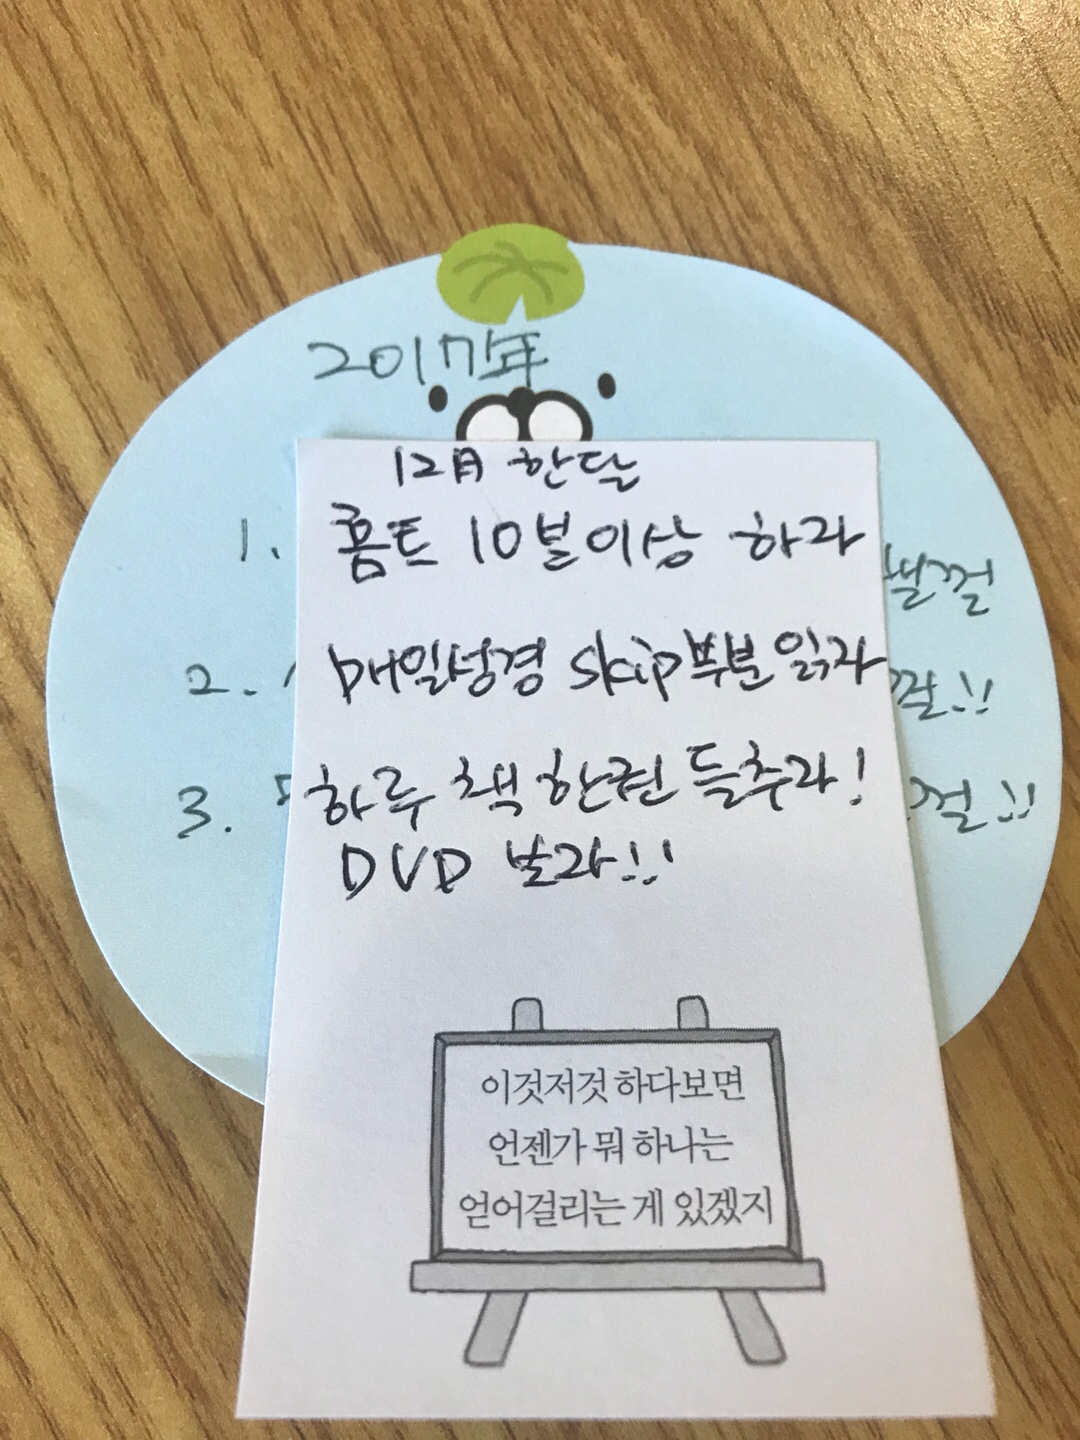 2017年
12月 한달
1.
홈트 10분이상 하라
껄
매일성경 skip부분 읽자
2.
껄!!
하루 책 한권 들추라!
3.
껄!!
DVD 보라!!
이것저것 하다보면
언젠가 뭐 하나는
얻어걸리는 게 있겠지